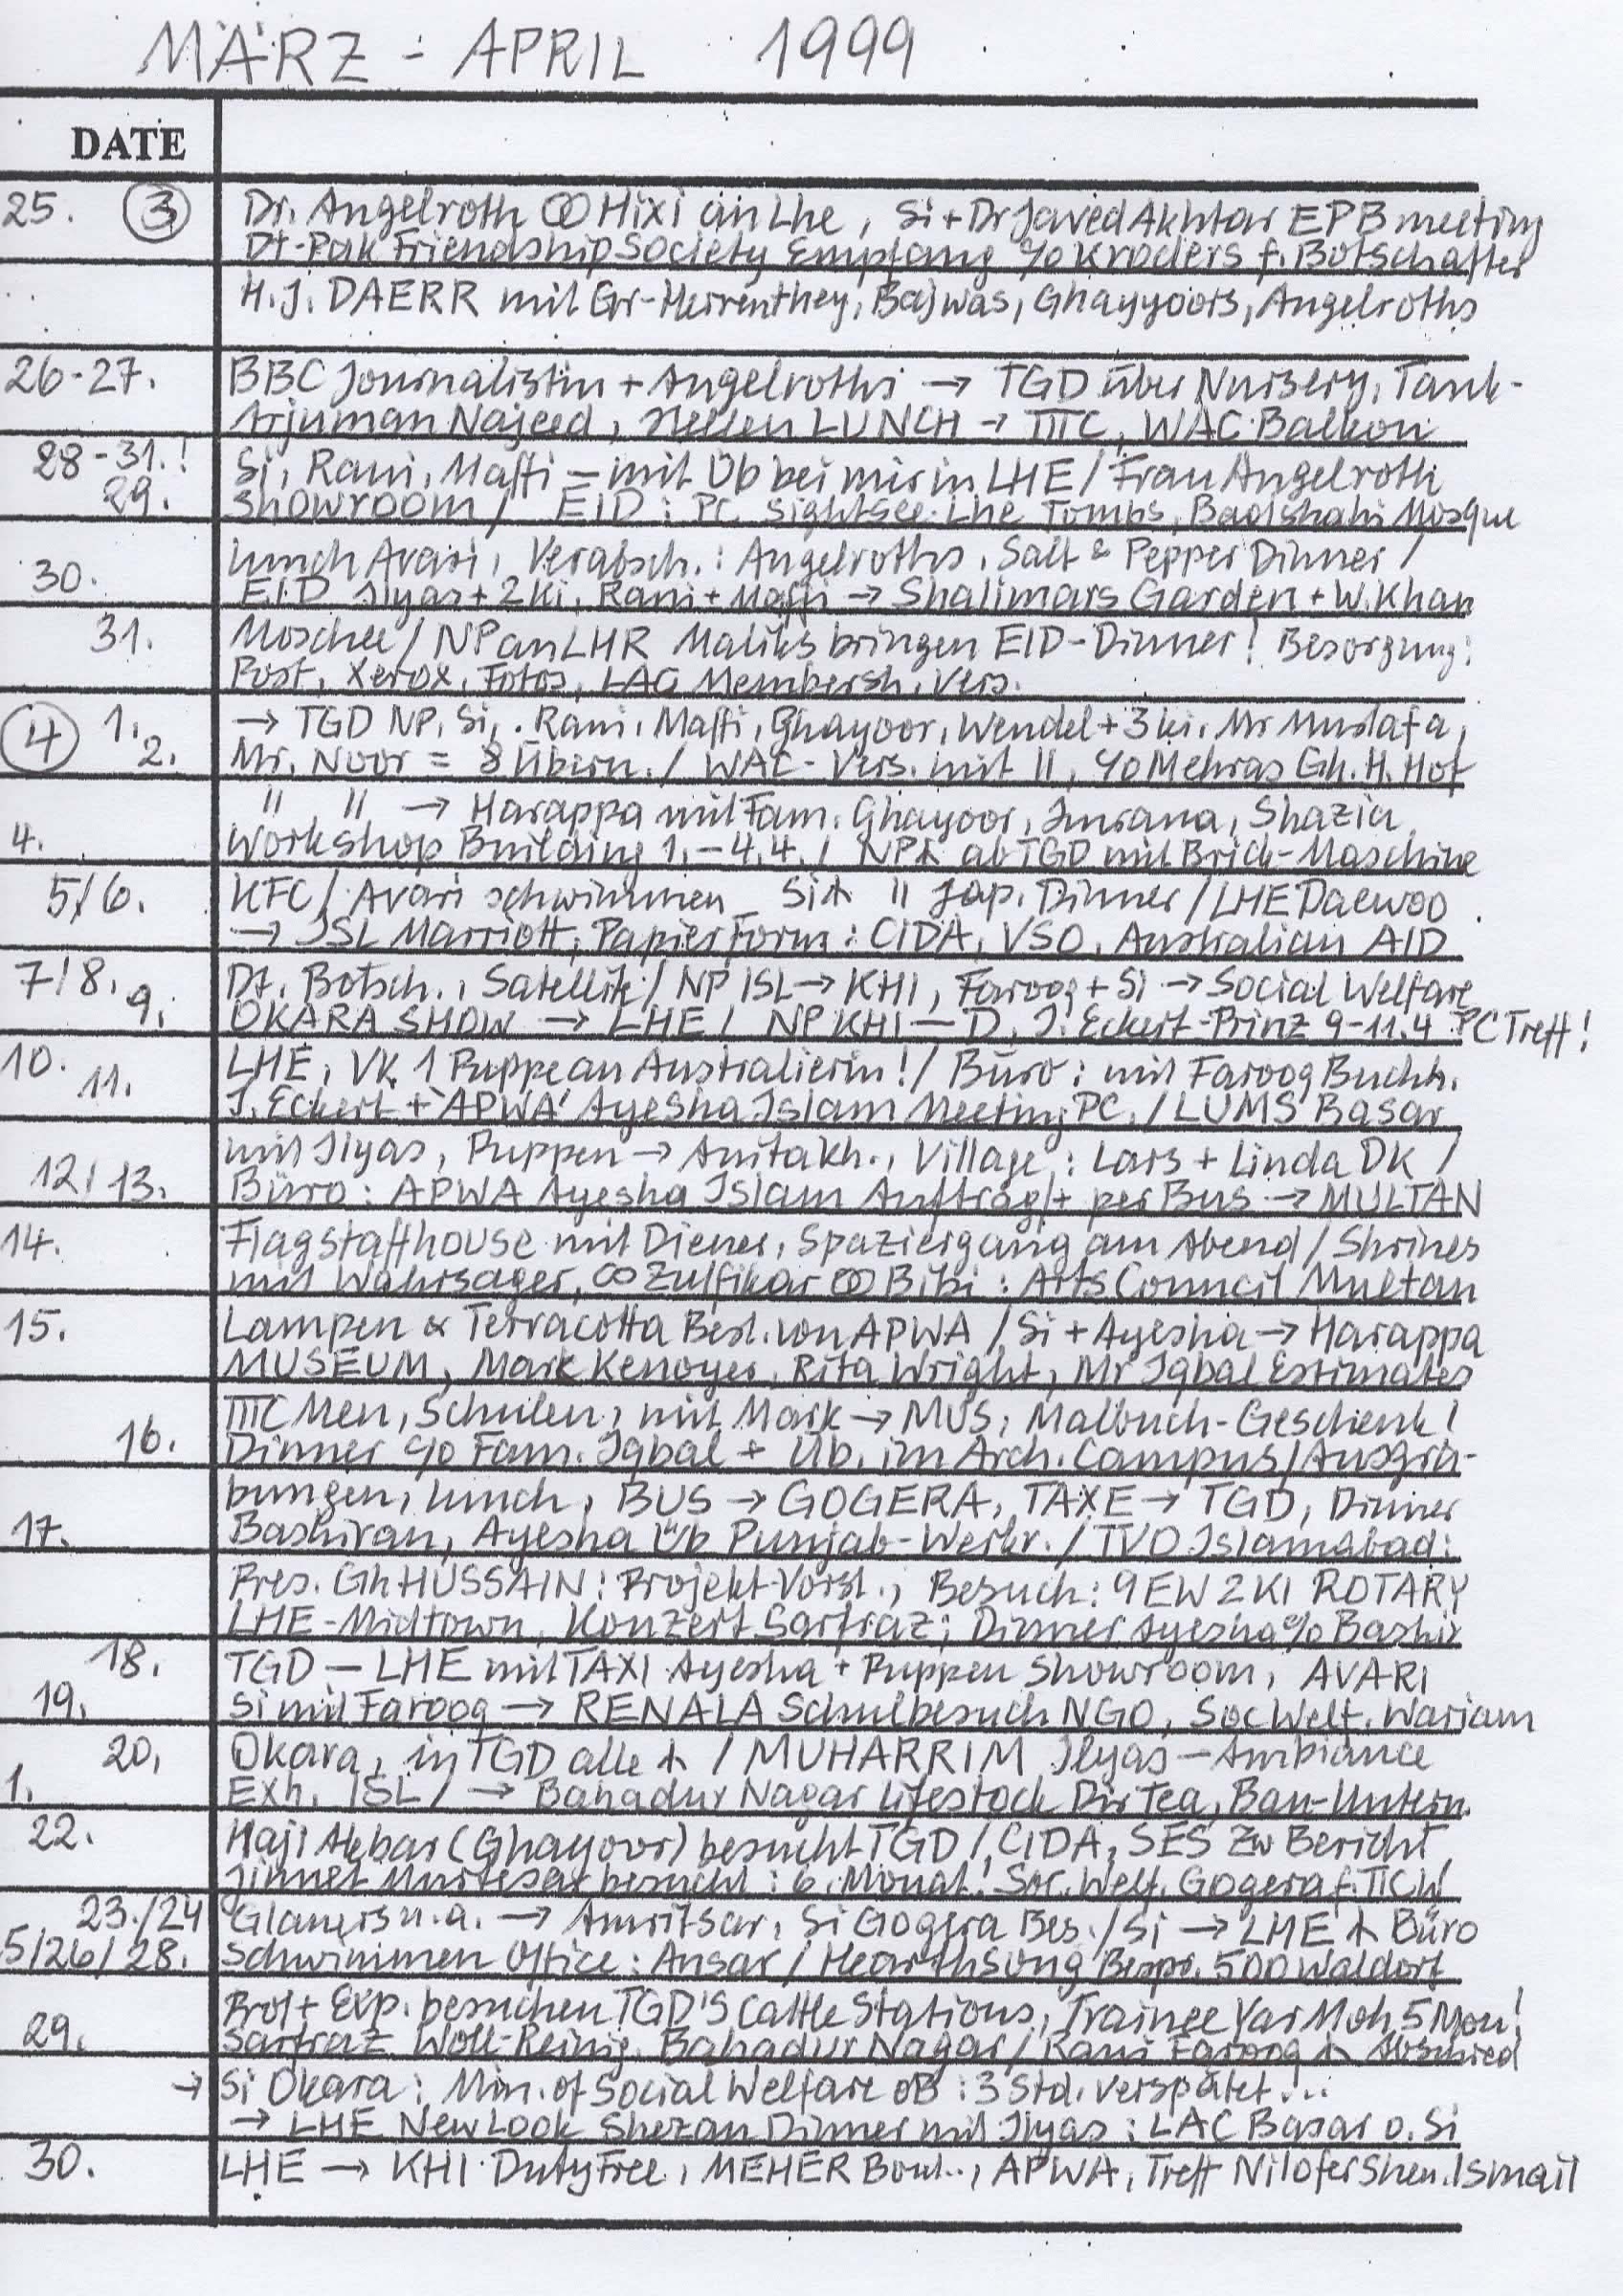 MÄRZ - APRIL 1999
DATE
25. 3 Dr. Angelroth Hixi an Lhe, Si + Dr Javed Akhtar EPB meeting
Dt-Pak Friendship Society Empfang c/o Kroders f. Botschafter
H.J. DAERR mit Gr-Herrenthey, Bajwas, Ghayyoors, Angelroths
26-27. BBC Journalistin + Angelroths → TGD über Nursery, Tank-
Arjuman Najeed, Hellen LUNCH → TTTC, WAC Balkon
28-31.! Si, Rani, Maffi = mit Üb bei mir in LHE / Frau Angelroth
29. Showroom / EID: Pc. sightsee. Lhe Tombs, Badshahi Mosque
lunch Avari, Verabsch.: Angelroths, Salt & Pepper Dinner /
30. EID Ilyas + 2 Ki, Rani + Maffi → Shalimars Garden + W. Khan
31. Moschee / NP an LHR Maliks bringen EID-Dinner! Besorgung:
Post, Xerox, Fotos, LAC Membersh. Vers.
4 1. → TGD NP, Si, . Rani, Maffi, Ghayoor, Wendel + 3 ki, Mr Mustafa,
2. Mr. Noor = 8 Übern. / WAC- Vers. mit 11, c/o Mehras Gh. H. Hof
" " → Harappa mit Fam. Ghayoor, Imrana, Shazia
4. Workshop Building 1.-4.4. / NP ab TGD mit Brick-Maschine
5/6. KFC / Avari schwimmen Si " Jap. Dinner / LHE Daewoo
→ ISL Marriott, Papier Form: CIDA, VSO, Australian AID
7/8. Dt. Botsch., Satellit / NP ISL → KHI, Farooq + Si → Social Welfare
9. OKARA SHOW → LHE / NP KHI — D, J. Eckert-Prinz 9-11.4 PC Treff!
10. LHE, VK 1 Puppe an Australierin! / Büro: mit Farooq Buchh.
11. J. Eckert + 'APWA' Ayesha Islam Meeting PC. / LUMS Basar
mit Ilyas, Puppen → Anita Kh., Village: Lars + Linda DK /
12/13. Büro: APWA Ayesha Islam Auftrag + per Bus → MULTAN
14. Flagstaffhouse mit Diener, Spaziergang am Abend / Shrines
mit Wahrsager, ∞ Zulfikar Bibi: Arts Council Multan
15. Lampen & Terracotta Best. von APWA / Si + Ayesha → Harappa
MUSEUM, Mark Kenoyer, Rita Wright, Mr Iqbal Estimates
TTTC Men, Schulen, mit Mark → MUS, Malbuch-Geschenk!
16. Dinner c/o Fam. Iqbal + Üb. im Arch. Campus / Ausgra-
bungen, lunch, BUS → GOGERA, TAXE → TGD, Dinner
17. Bashiran, Ayesha Üb Punjab-Werkr. / TVO Islamabad:
Pres. Gh HUSSAIN: Projekt-Vorst., Besuch: 9 EW 2 KI ROTARY
LHE-Midtown, Konzert Sarfraz; Dinner Ayesha c/o Bashir
18. TGD — LHE mit TAXI Ayesha + Puppen Showroom, AVARI
19. Si mit Farooq → RENALA Schulbesuch NGO, Soc Welf. Wariam
20. Okara, in TGD alle / MUHARRIM Ilyas — Ambiance
1. Exh. ISL / → Bahadur Nagar Lifestock Dir Tea, Bau-Untern.
22. Haji Akbar (Ghayoor) besucht TGD / CIDA, SES Zw Bericht
besucht: 6. Monat! Soc. Welf. Gogera f. TTCW
23./24 Glauers u.a. → Amritsar, Si Gogera Bes. / Si → LHE Büro
5/26/28. Schwimmen Office: Ansar / Hearthsong Bespr. 500 Waldorf
Prof + Exp. besuchen TGD'S Cattle Stations, Trainee Yar Moh. 5 Mon!
29. Sarfraz Woll-Reinig. Bahadur Nagar / Rani Farooq Abschied
→ Si Okara: Min. of Social Welfare oB: 3 Std. verspätet...
→ LHE New Look Shezan Dinner mit Ilyas: LAC Basar o. Si
30. LHE → KHI Duty Free, MEHER Bout.., APWA, Treff Nilofer Shen. Ismail